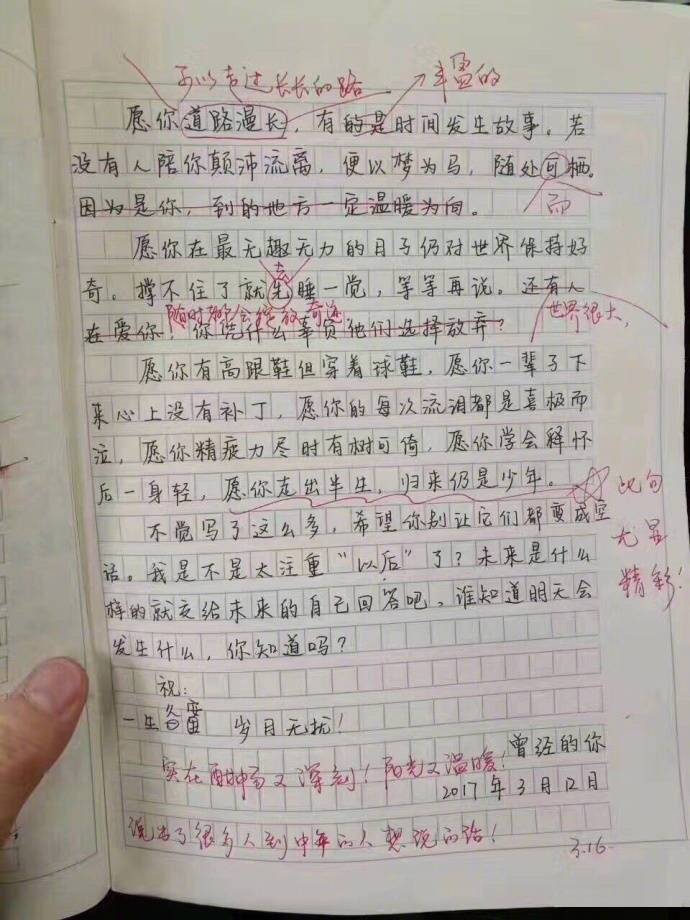 可以走过长长的路
丰盈的
愿你道路漫长，有的是时间发生故事。若
没有人陪你颠沛流离，便以梦为马，随处可栖。
而
因为是你，到的地方一定温暖为向。
愿你在最无趣无力的日子仍对世界保持好
去
奇。撑不住了就先睡一觉，等等再说。还有人
随时都会绽放奇迹
世界很大，
在爱你，你凭什么辜负他们选择放弃？
愿你有高跟鞋但穿着球鞋，愿你一辈子下
来心上没有补丁，愿你的每次流泪都是喜极而
泣，愿你精疲力尽时有树可倚，愿你学会释怀
后一身轻，愿你走出半生，归来仍是少年。
此句
尤显
精彩！
不觉写了这么多，希望你别让它们都变成空
话。我是不是太注重“以后”了？未来是什么
样的就交给未来的自己回答吧，谁知道明天会
发生什么，你知道吗？
祝：
一生 岁月无扰！
曾经的你
实在 又深刻！阳光又温暖！
2017年3月12日
说出了很多人到中年的人想说的话！
3.16